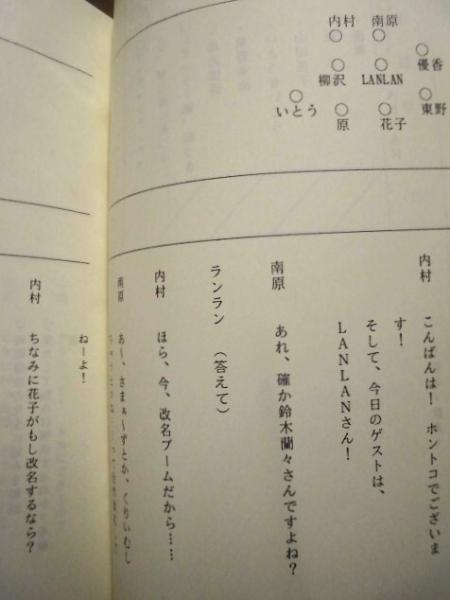 内村 南原
優香
柳沢 LANLAN
いとう 東野
原 花子
内村 こんばんは! ホントコでございま
す!
そして、今日のゲストは、
LANLANさん!
南原 あれ、確か鈴木蘭々さんですよね?
ランラン (答えて)
内村 ほら、今、改名ブームだから……
南原 あ〜、さまぁ〜ずとか、くりぃむし
ねーよ!
内村 ちなみに花子がもし改名するなら?